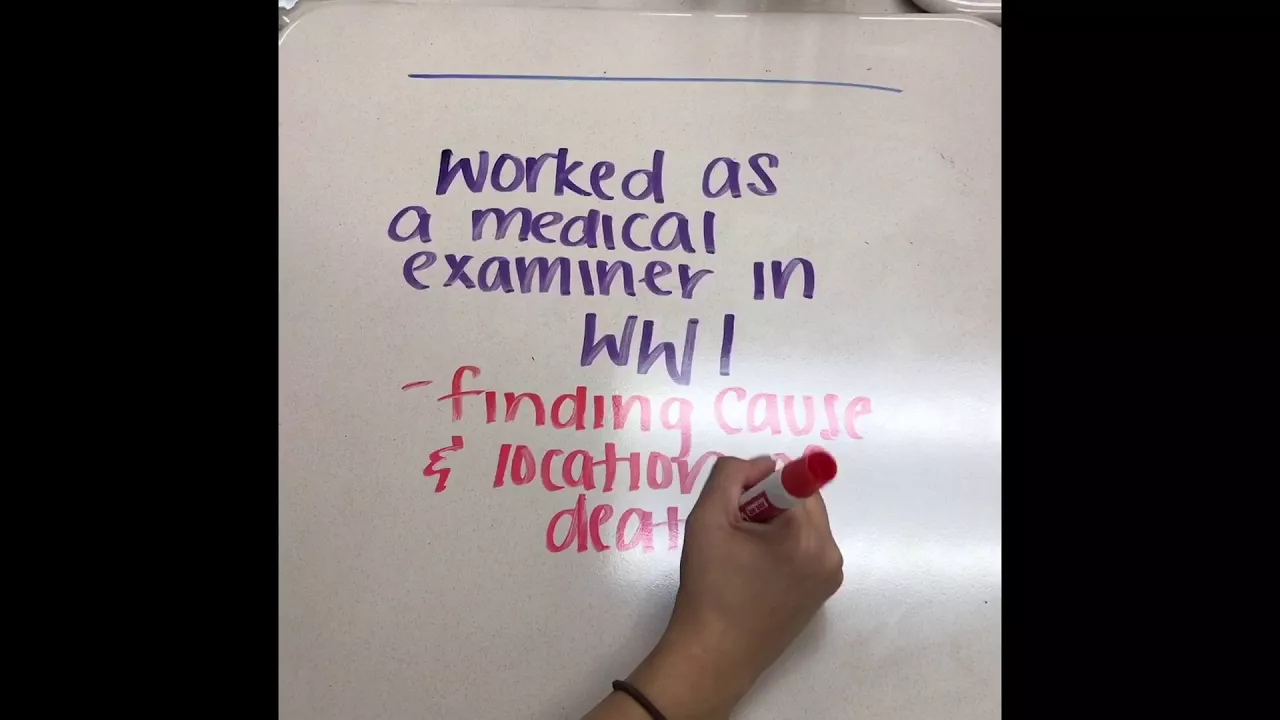 worked as
a medical
examiner in
WW1
- finding cause
& location of
deat